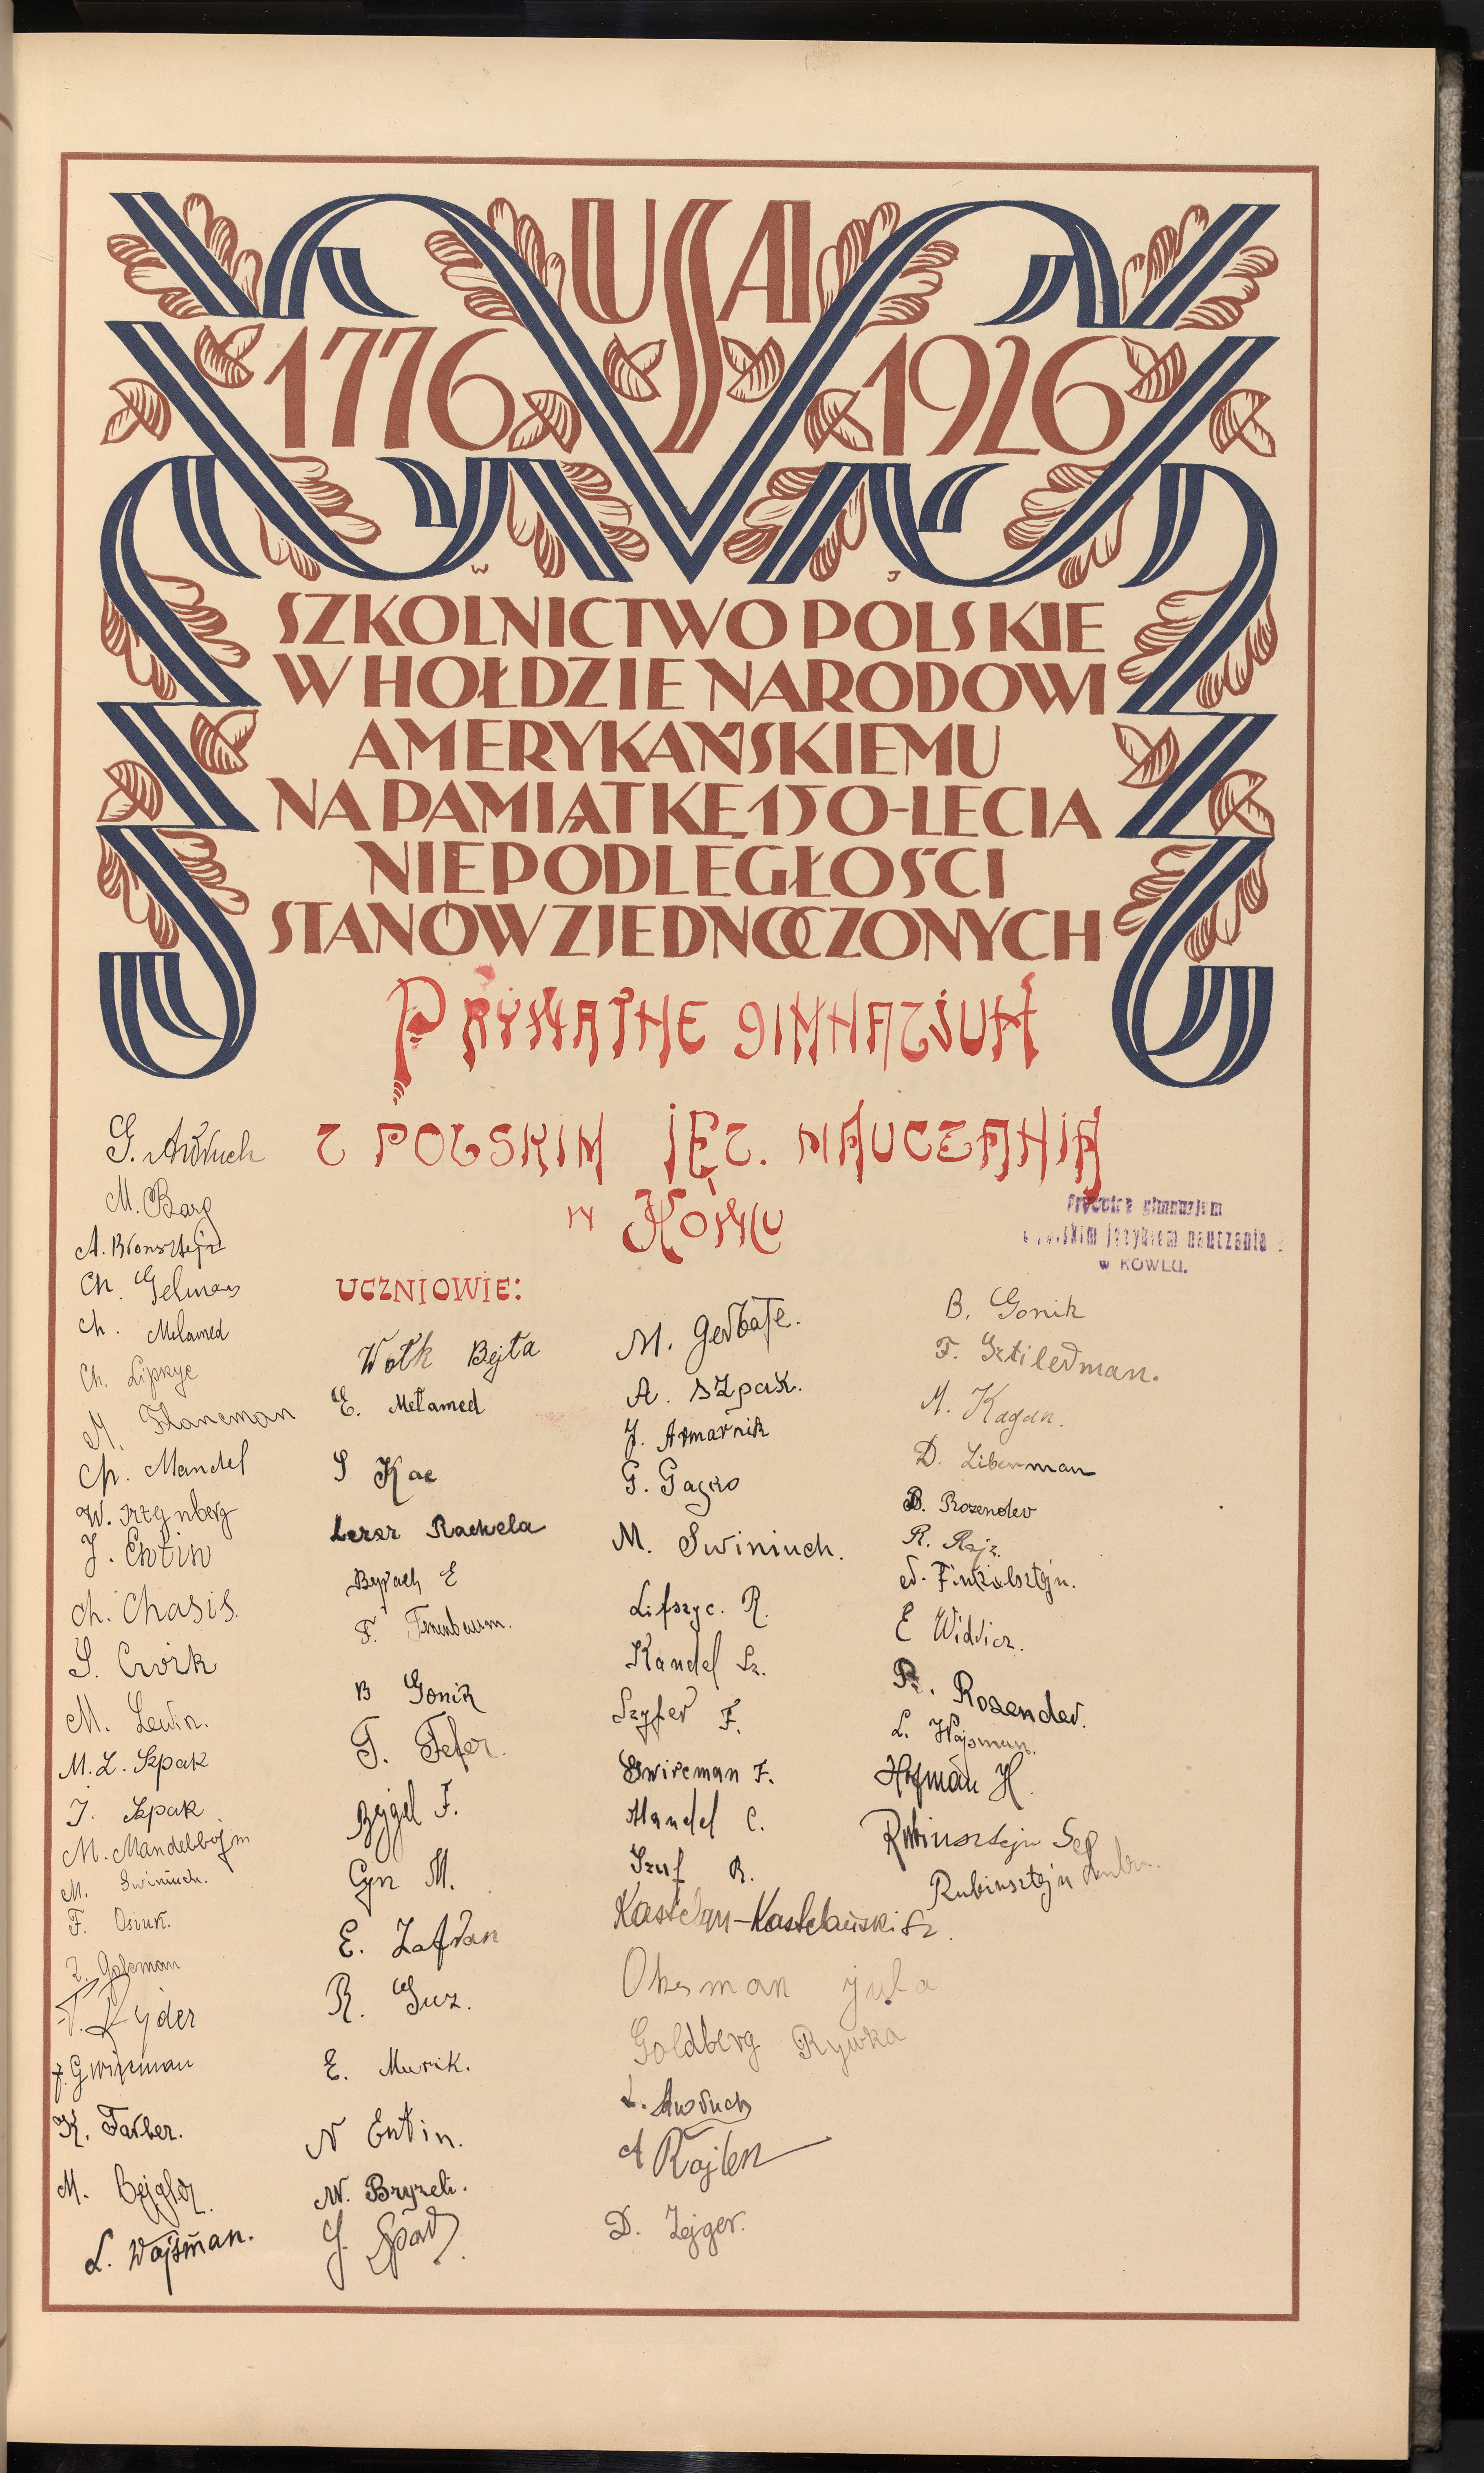 USA
1776 1926
W J
SZKOLNICTWO POLSKIE
W HOŁDZIE NARODOWI
AMERYKAŃSKIEMU
NA PAMIĄTKĘ 150-LECIA
NIEPODLEGŁOŚCI
STANÓW ZJEDNOCZONYCH
PRYWATNE GIMNAZJUM
Z POLSKIM JĘZ. NAUCZANIA
W KOWLU
gimnazjum
językiem nauczania
w KOWLU.
G. Awruch
M. Barg
A. Bronsztejn
Ch. Gelman
Ch. Melamed
Ch. Lipszyc
M.
Ch. Mandel
W. Sztejnberg
J. Entin
Ch. Chasis.
S. Cwik
M. Lewin.
M. L. Szpak
J. Szpak
M. Mandelbojm
M. Swiniuch.
F. Osiuk.
Z. Golzman
T. Ryder
J. Gwircman
K. Farber.
M. Bejgler.
L. Wajsman.
UCZNIOWIE:
Wolk Bejla
E. Melamed
S Kac
Lerer Rachela
E
F. Tenenbaum.
B Gonik
T. Fefer.
Bejgel F.
Cyn M.
E. Zafran
R. Guz.
E. Murik.
N Entin.
M.
J.
M. Gerbate.
A. Szpak.
J. Armarnik
G. Gazko
M. Swiniuch.
Lifszyc. R.
Kandel Sz.
Szyfer F.
Gwircman F.
Mandel C.
Szuf R.
Kastelan-Kastelański Sz.
Oksman Jula
Goldberg Rywka
L. Awruch
A Rajten
D. Zejger.
B. Gonik
F. Sztilerman.
M. Kagan.
D. Liberman
B. Rozender
R. Rajz.
Finkielsztejn.
E Widricz.
R. Rozender.
L. Wajsman.
Hofman H.
Rubinsztejn
Rubinsztejn Luba.